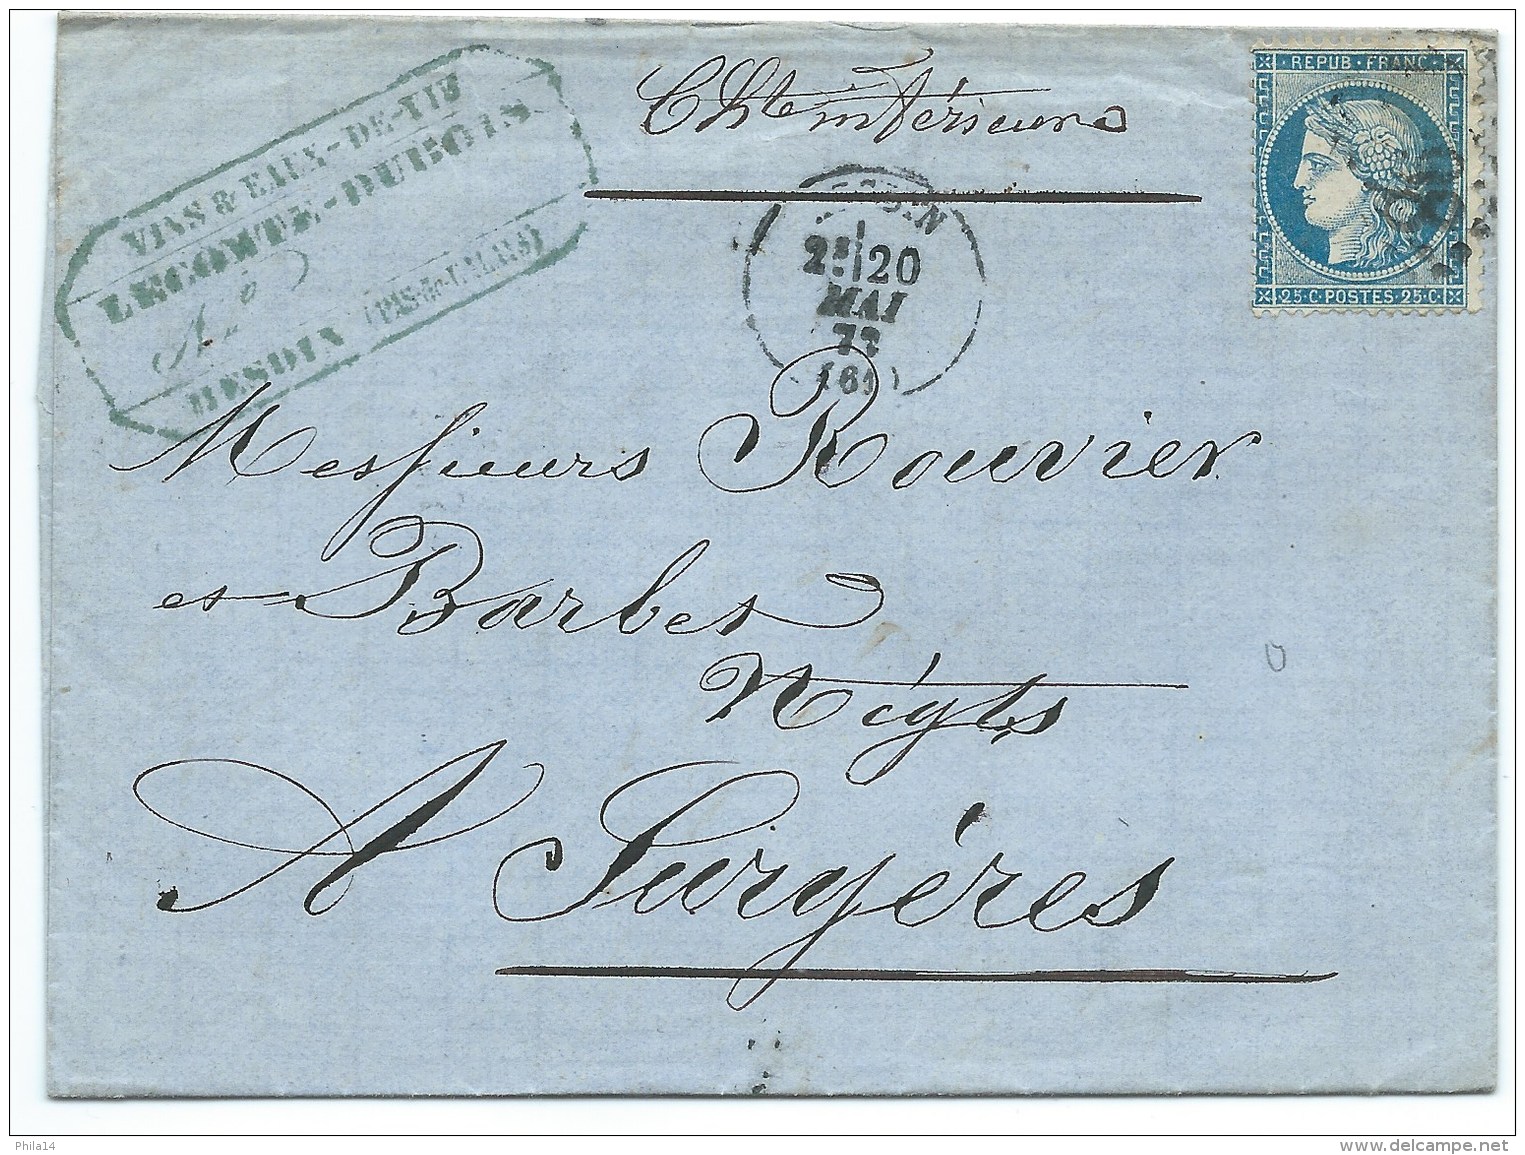 VINS & EAUX-DE-VIE
LECOMTE-DUBOIS
HESDIN (PAS-de-CALAIS)
Chte inférieure
REPUB · FRANC
25·C·POSTES·25·C
HESDIN
2E 20
MAI
72
(61)
Messieurs Rouvier
et Barbes
Négts
A Surgères
Phila14
www.delcampe.net